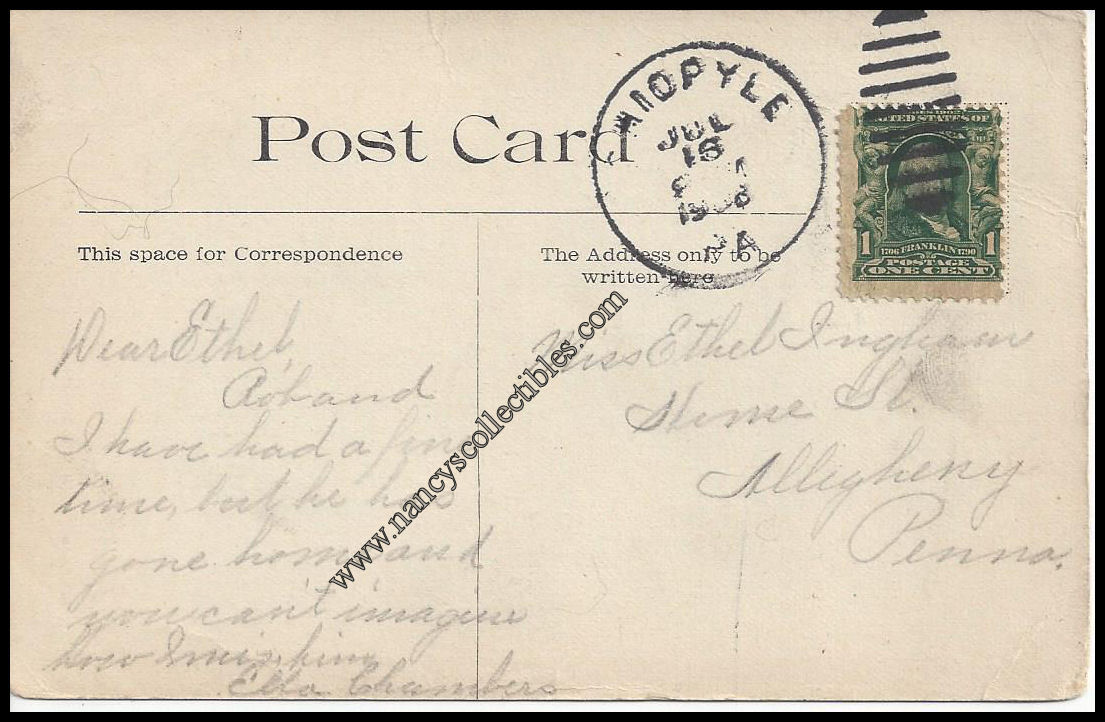 Post Card
This space for Correspondence
The Address only to be
written here
OHIOPYLE
JUL
PA
UNITED STATES OF
1 1706 FRANKLIN 1790 1
POSTAGE
ONE CENT
Dear Ethel,
Rob and
I have had a fine
time, but he has
gone home and
you can't imagine
how I miss him
Ella Chambers
Miss Ethel Ingham
St.
Allegheny
Penna.
www.nancyscollectibles.com